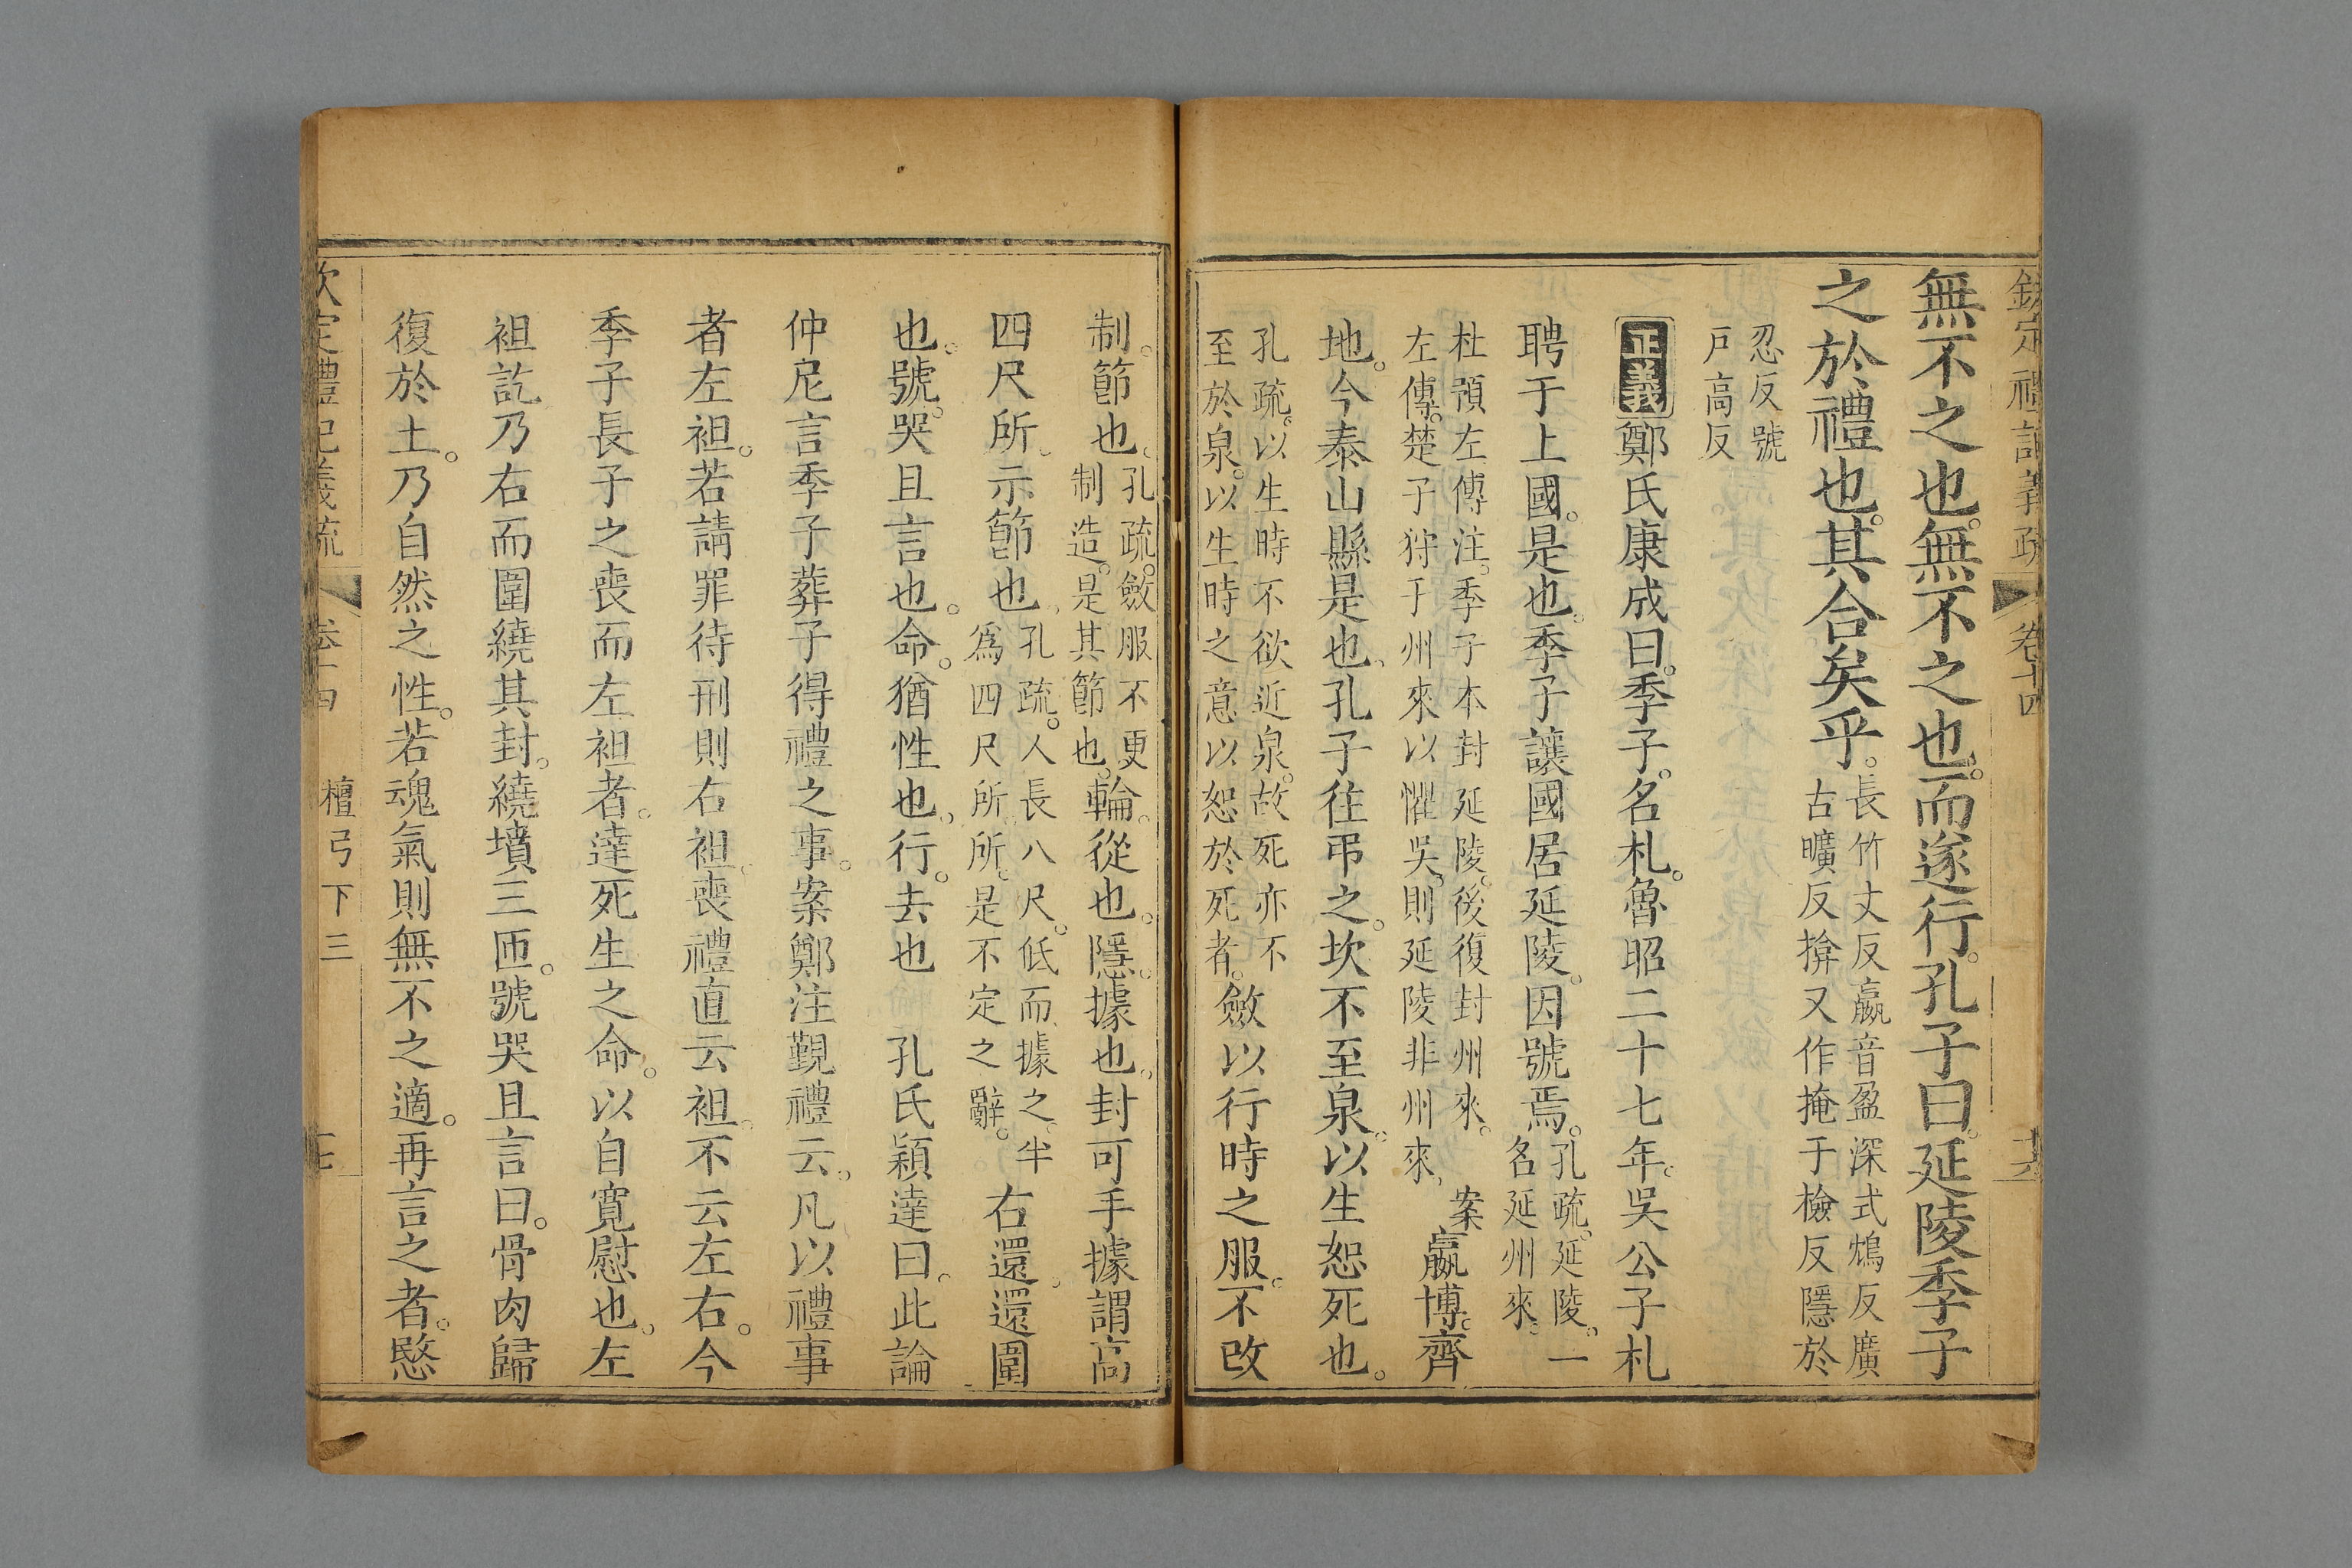 欽定禮記義疏 卷十四
無不之也。無不之也。而遂行。孔子曰。延陵季子
之於禮也。其合矣乎。長竹丈反嬴音盈深式鴆反廣
古曠反揜又作掩于檢反隱於
忍反號
戶高反
正義鄭氏康成曰。季子。名札。魯昭二十七年。吳公子札
聘于上國。是也。季子讓國居延陵。因號焉。孔疏。延陵。一
名延州來。
杜預左傳注。季子本封延陵。後復封州來。
左傳。楚子狩于州來以懼吳。則延陵非州來、案嬴博。齊
地。今泰山縣是也、孔子往弔之。坎不至泉。以生恕死也。
孔疏。以生時不欲近泉。故死亦不
至於泉。以生時之意以恕於死者。斂以行時之服。不改
制。節也、孔疏。斂服不更
制造。是其節也。輪。從也。隱。據也。封可手據謂高
四尺所、示節也、孔疏。人長八尺。低而據之、半
爲四尺所。所。是不定之辭。右還。還圍
也。號。哭且言也。命。猶性也、行。去也 孔氏穎達曰。此論
仲尼言季子葬子得禮之事。案鄭注覲禮云。凡以禮事
者左袒。若請罪待刑則右袒。喪禮直云袒。不云左右。今
季子長子之喪而左袒者。達死生之命。以自寬慰也。左
袒訖乃右而圍繞其封。繞墳三匝。號哭且言曰。骨肉歸
復於土。乃自然之性。若魂氣則無不之適。再言之者。愍
欽定禮記義疏 卷十四 檀弓下三